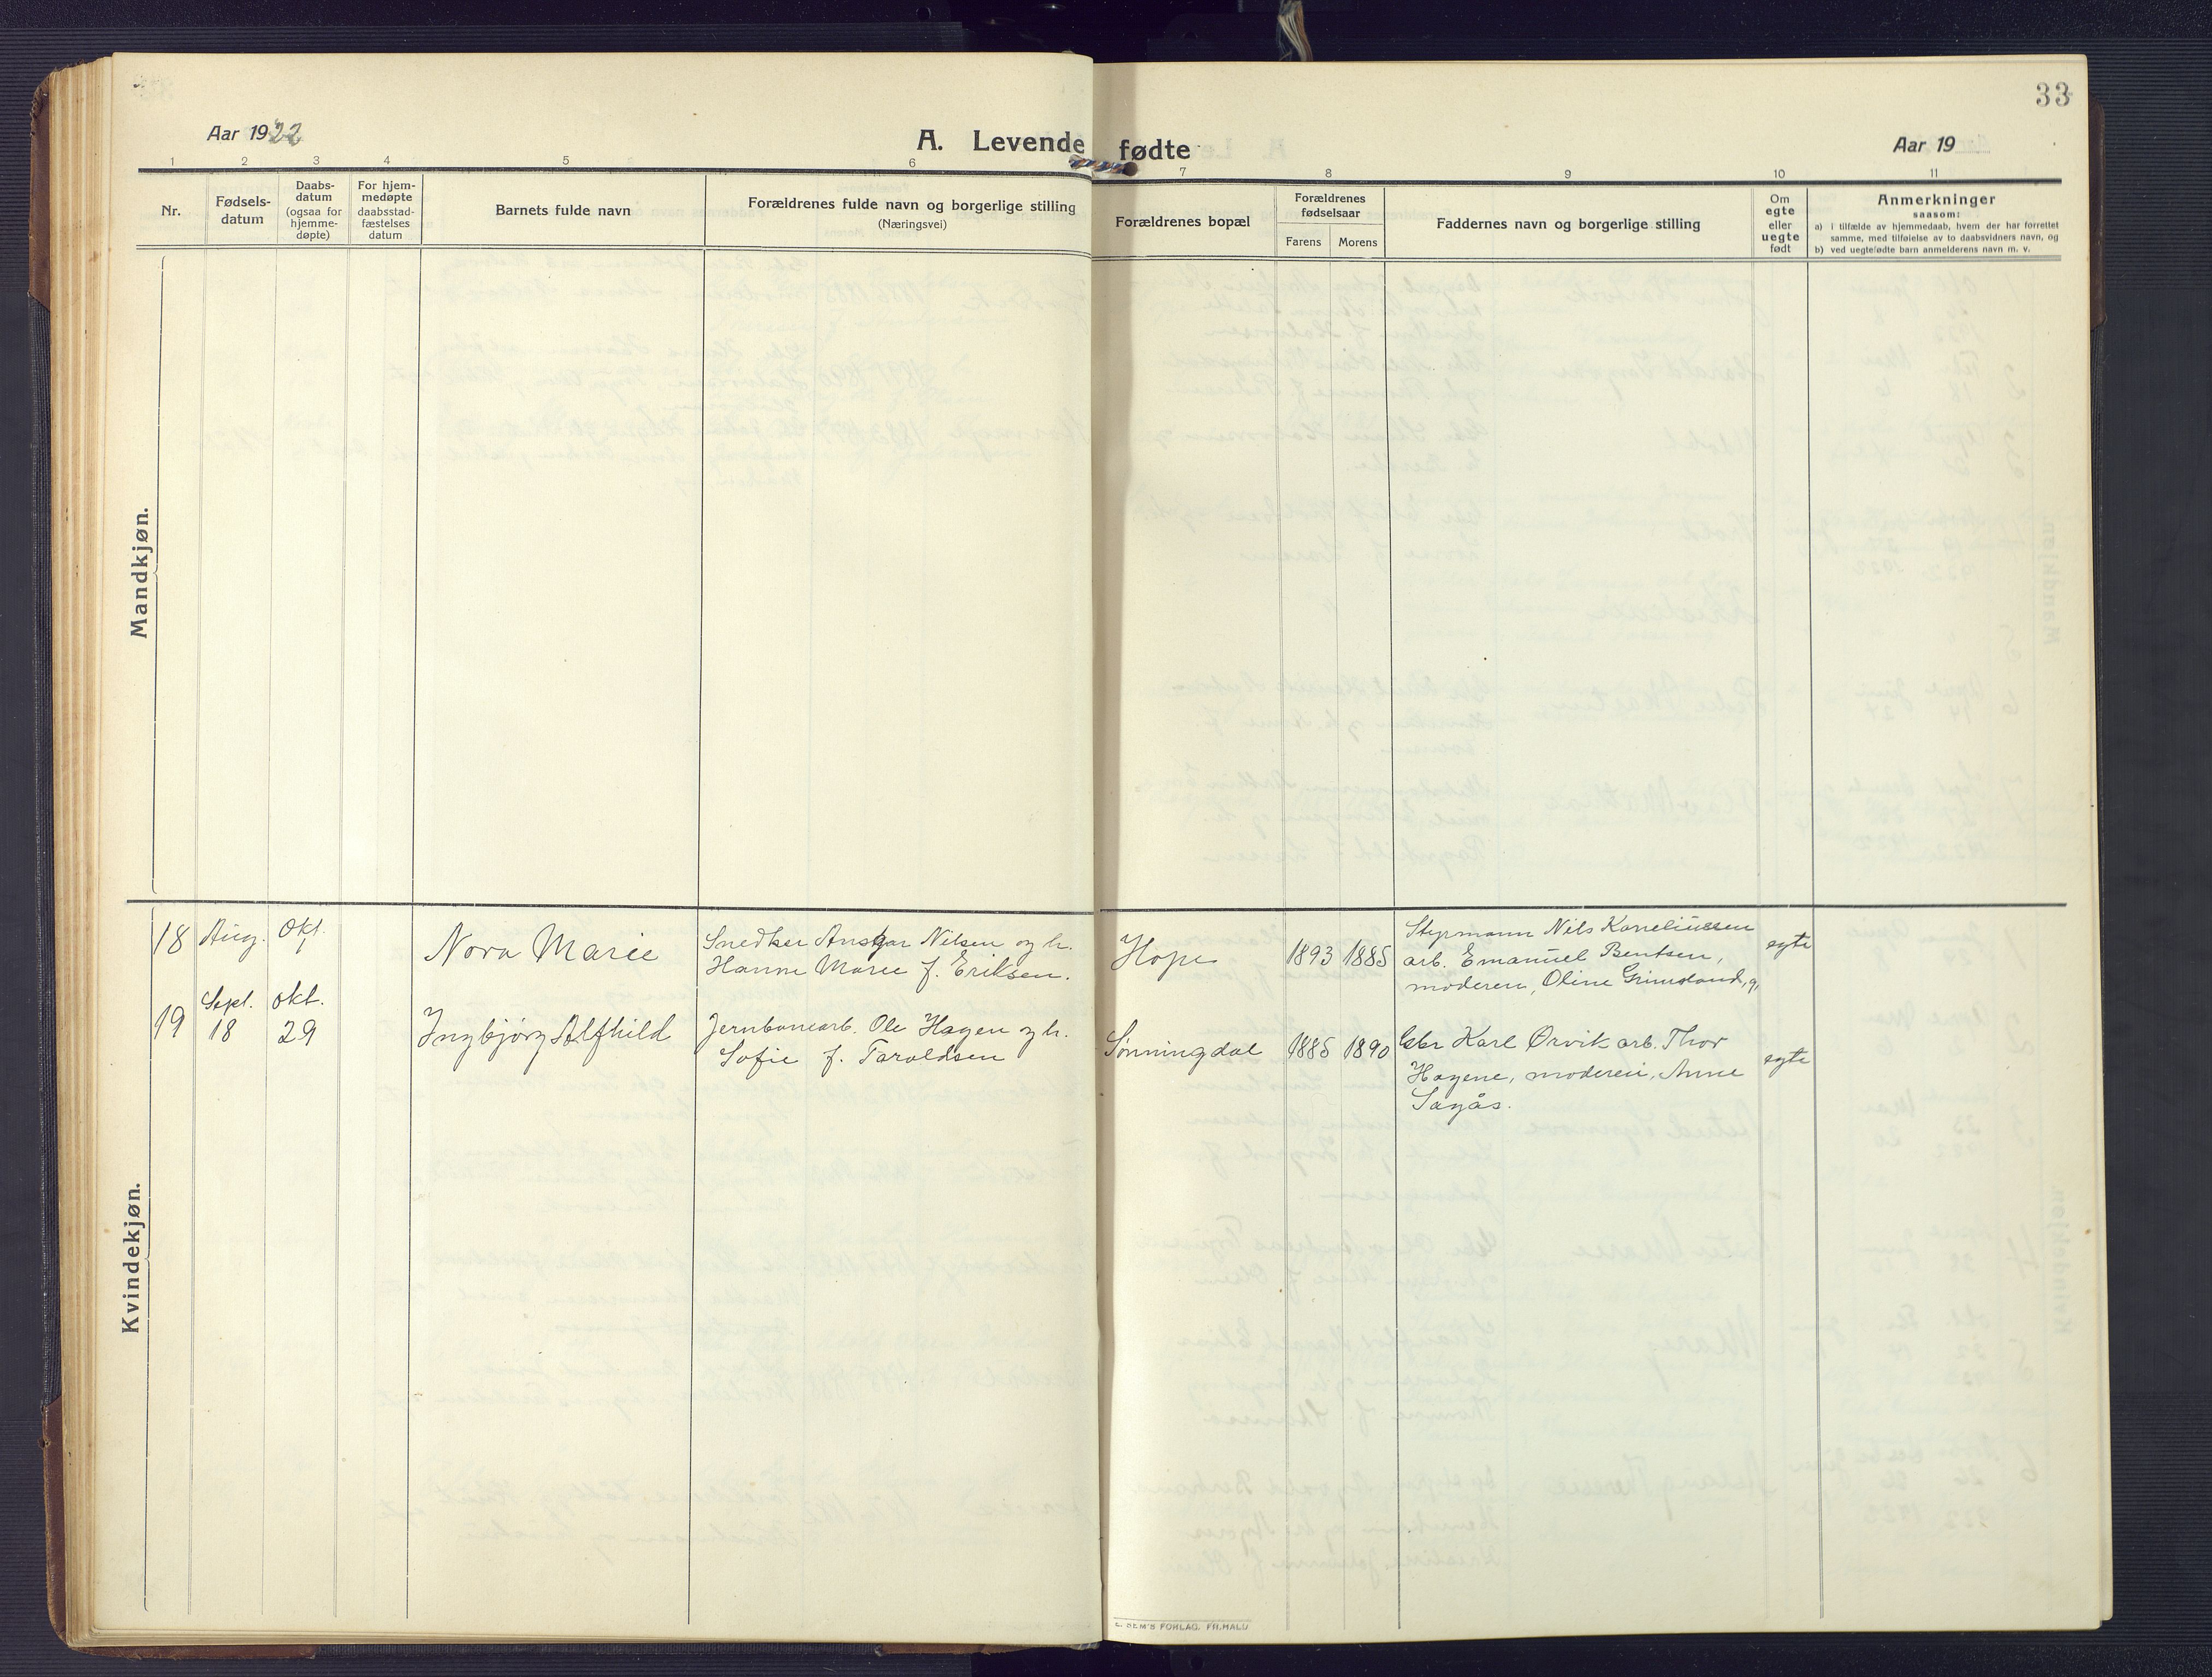 33
Aar 1922
A. Levende fødte
Aar 19
1 2 3 4 5 6 7 8 9 10 11
Nr.
Fødsels-
datum
Daabs-
datum
(ogsaa for
hjemme-
døpte)
For hjem-
medøpte
daabsstad-
fæstelses
datum
Barnets fulde navn
Forældrenes fulde navn og borgerlige stilling
(Næringsvei)
Forældrenes bopæl
Forældrenes
fødselsaar
Farens Morens
Faddernes navn og borgerlige stilling
Om
egte
eller
uegte
født
Anmerkninger
saasom:
a) i tilfælde av hjemmedaab, hvem der har forrettet
samme, med tilføielse av to daabsvidners navn, og
b) ved uegtefødte barn anmelderens navn m. v.
Mandkjøn.
Kvindekjøn.
18 Aug. Okt.
1
Nora Marie
Snedker Ansgar Nilsen og h.
Hanne Marie f. Eriksen.
Hope
1893 1885
Styrmann Nils Korneliussen
arb. Emanuel Bentsen,
moderen, Oline Grimsland,
egte
19
Sept. Okt.
18 29
Ingbjørg Alfhild
Jernbanearb. Ole Hagen og h.
Sofie f. Taraldsen
Sønningdal
1885 1890
Gbr Karl Ørvik arb. Thor
Hagene, moderen, Anne
Sagås.
egte
FORLAG, FR.HALD